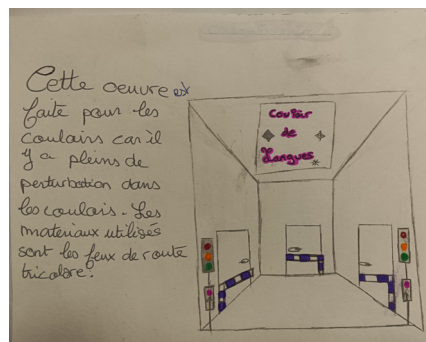 Cette oeuvre est
faite pour les
coulairs car il
y a pleins de
perturbation dans
les coulairs. Les
materiaux utilisés
sont les feux de route
tricolore.
Couloir
de
Langues